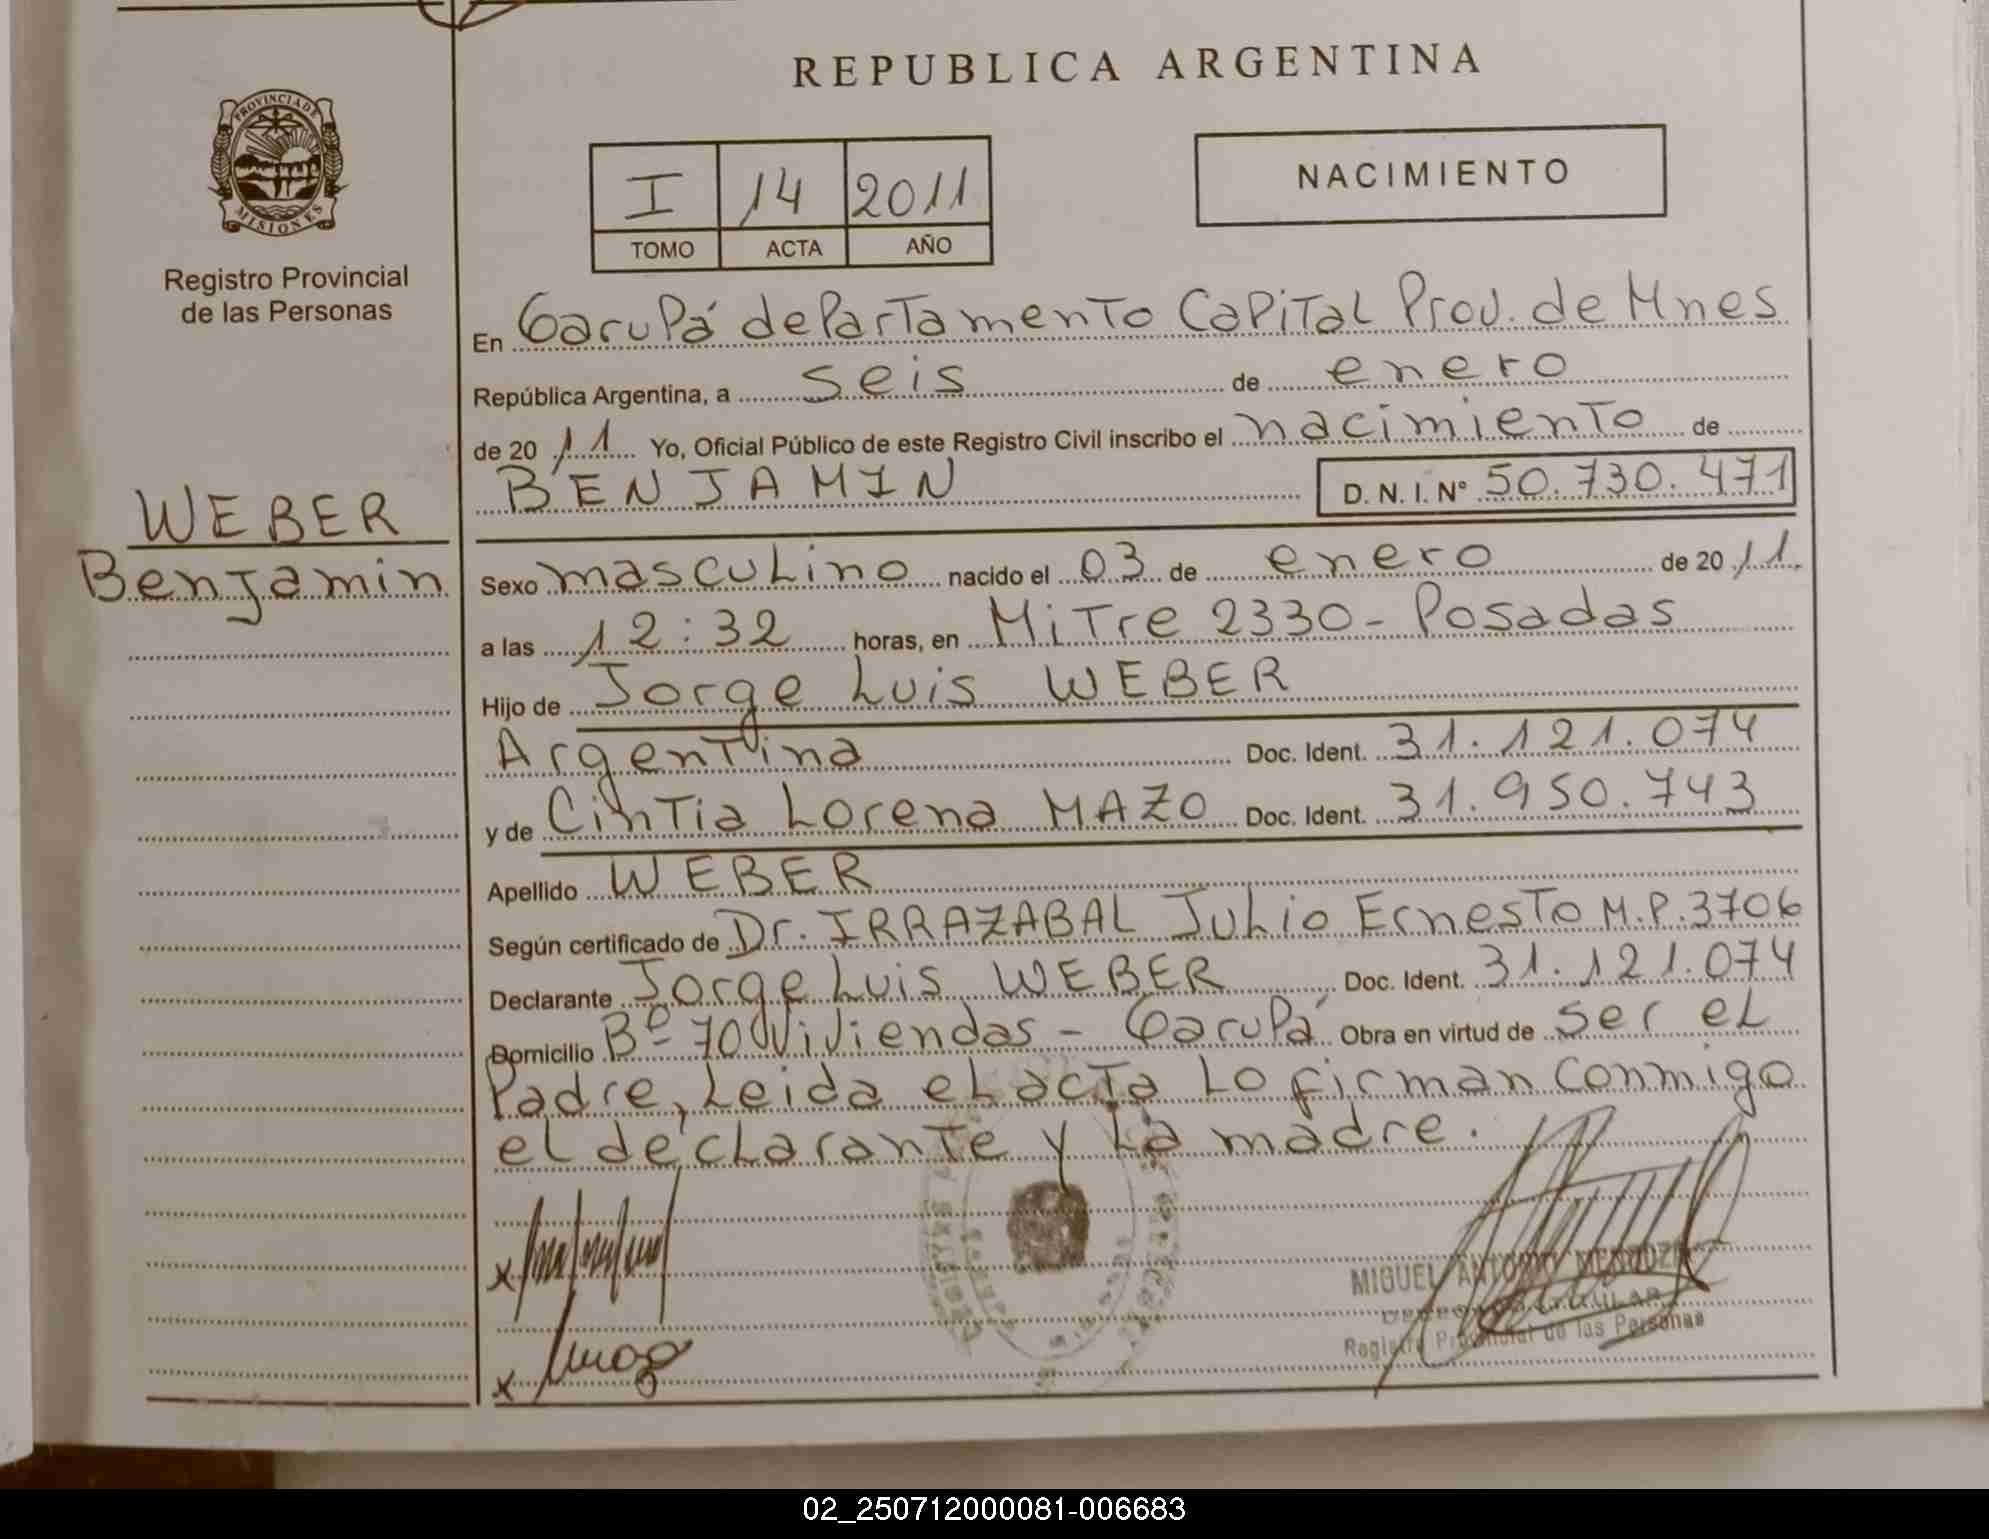 REPUBLICA ARGENTINA
PROVINCIA DE
MISIONES
Registro Provincial
de las Personas
I 14 2011
TOMO ACTA AÑO
NACIMIENTO
En Garupá departamento Capital Prov. de Mnes
República Argentina, a seis de enero
de 20 11 Yo, Oficial Público de este Registro Civil inscribo el nacimiento de
BENJAMIN D. N. I. Nº 50.730.471
WEBER
Benjamin
Sexo masculino nacido el 03 de enero de 20 11
a las 12:32 horas, en Mitre 2330 - Posadas
Hijo de Jorge Luis WEBER
Argentina Doc. Ident. 31.121.074
y de Cintia Lorena MAZO Doc. Ident. 31.950.743
Apellido WEBER
Según certificado de Dr. IRRAZABAL Julio Ernesto M.P. 3706
Declarante Jorge Luis WEBER Doc. Ident. 31.121.074
Domicilio Bº 70 Viviendas - Garupá Obra en virtud de ser el
Padre, Leida el acta lo firman conmigo
el declarante y la madre.
MIGUEL ANTONIO MENDOZA
Registro Provincial de las Personas
02_250712000081-006683